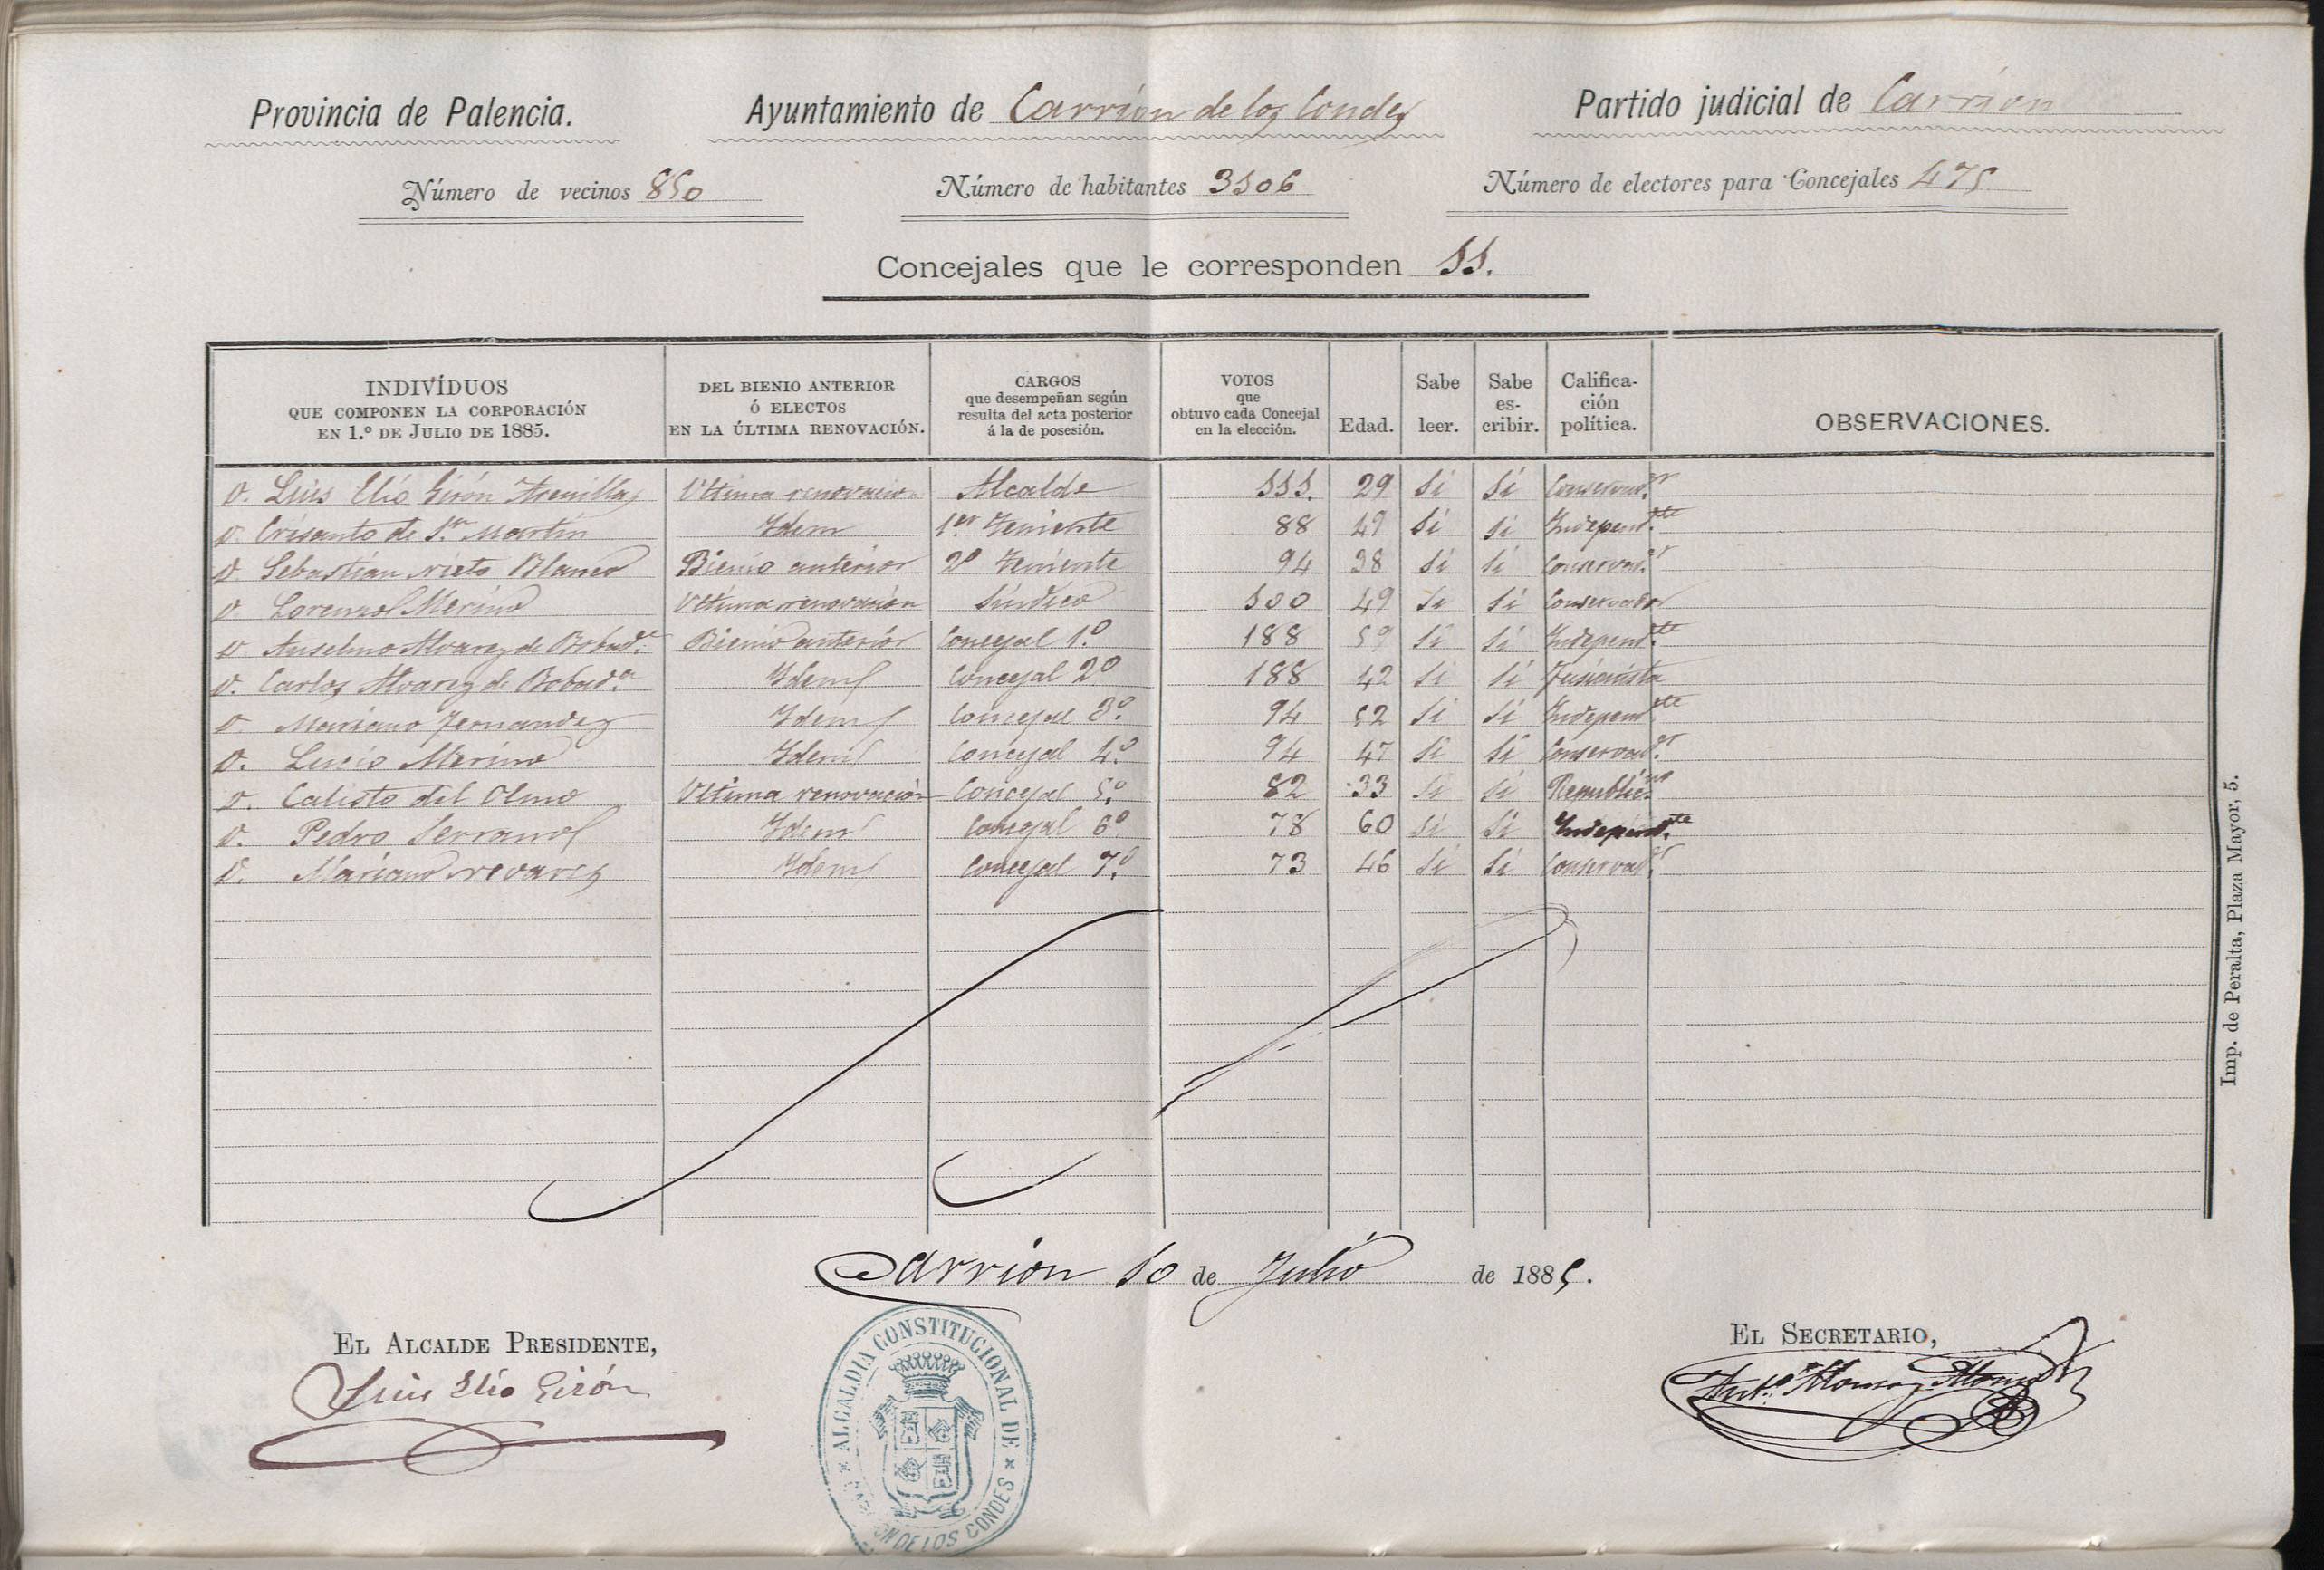 Provincia de Palencia. Ayuntamiento de Carrión de los Condes Partido judicial de Carrión
Número de vecinos 850 Número de habitantes 3106 Número de electores para Concejales 475
Concejales que le corresponden 11.
INDIVÍDUOS QUE COMPONEN LA CORPORACIÓN EN 1.º DE JULIO DE 1885. DEL BIENIO ANTERIOR Ó ELECTOS EN LA ÚLTIMA RENOVACIÓN. CARGOS que desempeñan según resulta del acta posterior á la de posesión. VOTOS que obtuvo cada Concejal en la elección. Edad. Sabe leer. Sabe es- cribir. Califica- ción política. OBSERVACIONES.
D. Luis Elío Girón Arenillas Ultima renovacion Alcalde 111. 29 Si Si Conservad.or
D. Crisanto de S.n Martín Idem 1er Teniente 88 49 Si Si Independ.te
D. Sebastian Nieto Blanco Bienio anterior 2º Teniente 94 38 Si Si Conservad.or
D. Lorenzo Merino Ultima renovación Síndico 100 49 Si Si Conservador
D. Anselmo Alvarez de Bobad.a Bienio anterior Concejal 1.º 188 59 Si Si Independ.te
D. Carlos Alvarez de Bobad.a Idem Concejal 2º 188 42 Si Si Fusionista
D. Mariano Fernandez Idem Concejal 3.º 94 52 Si Si Independ.te
D. Lucio Merino Idem Concejal 4.º 94 47 Si Si Conservad.or
D. Calisto del Olmo Ultima renovación Concejal 5.º 82 33 Si Si Republic.no
D. Pedro Serrano Idem Concejal 6º 78 60 Si Si Independ.te
D. Mariano Nevares Idem Concejal 7.º 73 46 Si Si Conservad.or
Imp. de Peralta, Plaza Mayor, 5.
Carrión 10 de Julio de 1885.
EL ALCALDE PRESIDENTE, EL SECRETARIO,
Luis Elío Girón Ant.º Alonso y Alonso
ALCALDIA CONSTITUCIONAL DE CARRION DE LOS CONDES